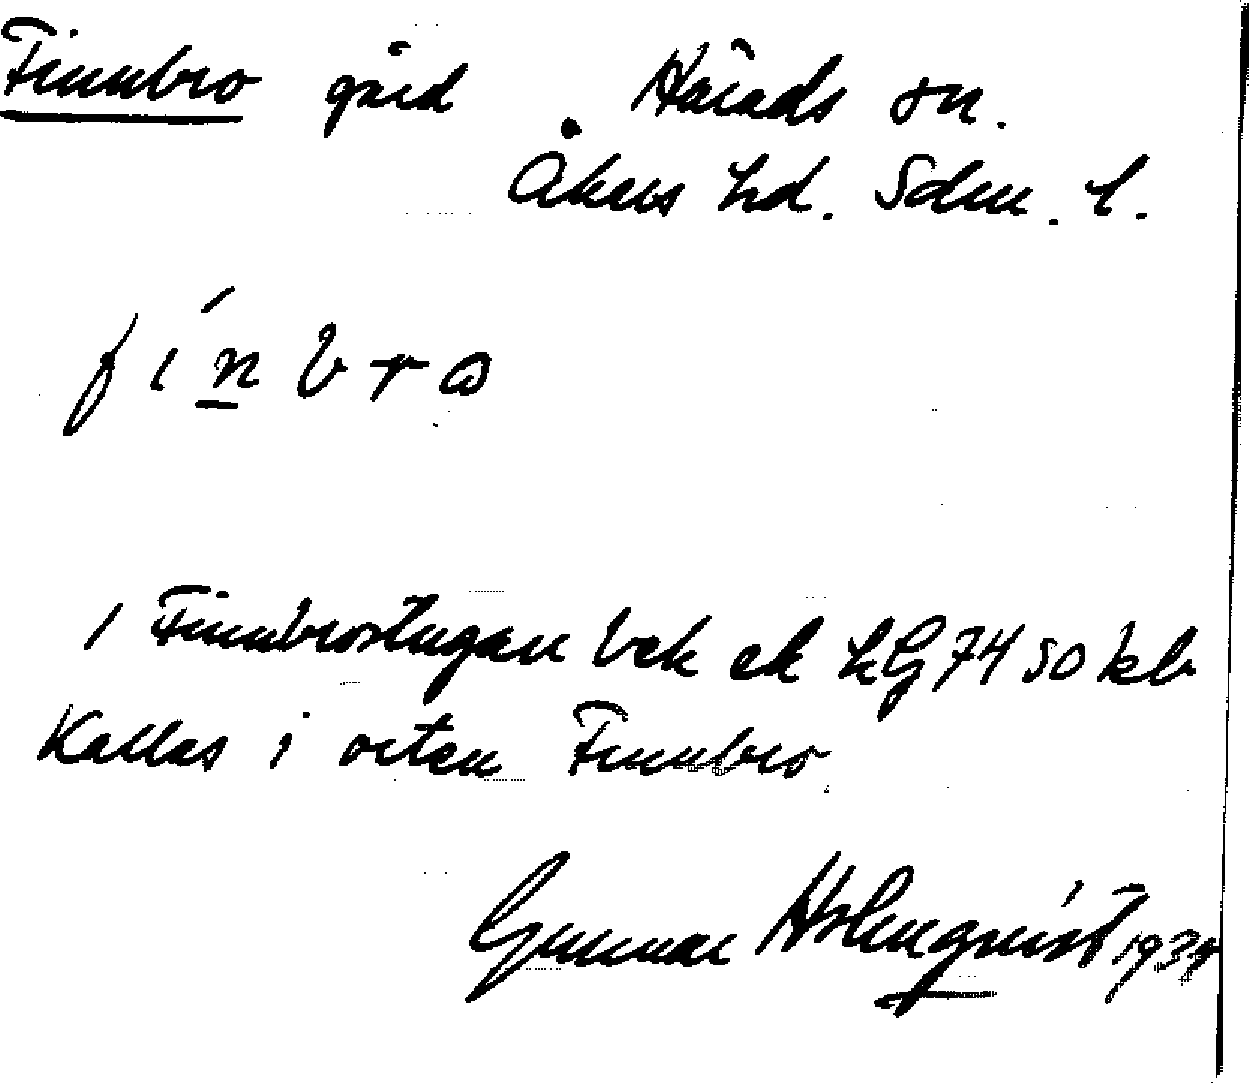 Finnbro gård Härads sn.
Åkers hd. Sdm. l.
fín bro
/ Finnbrostugan bek ek hG 74 50 kb
Kallas i orten Finnbro
Gunnar Holmquist